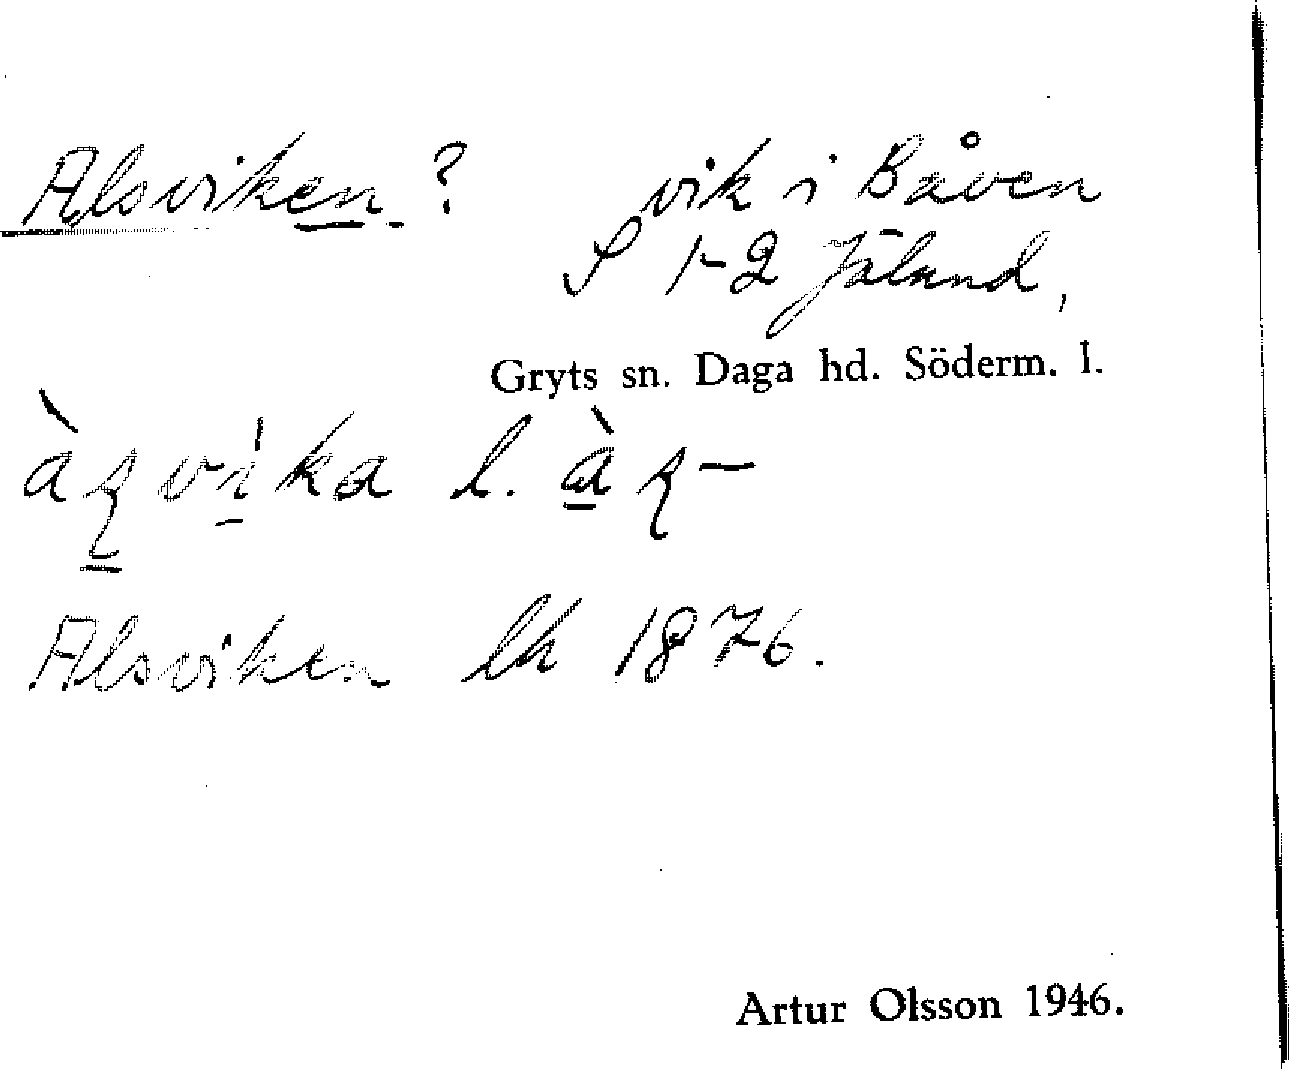 Alsviken? vik i Båven
S 1-2 Jäland,
Gryts sn. Daga hd. Söderm. l.
l.
Alsviken lk 1876.
Artur Olsson 1946.